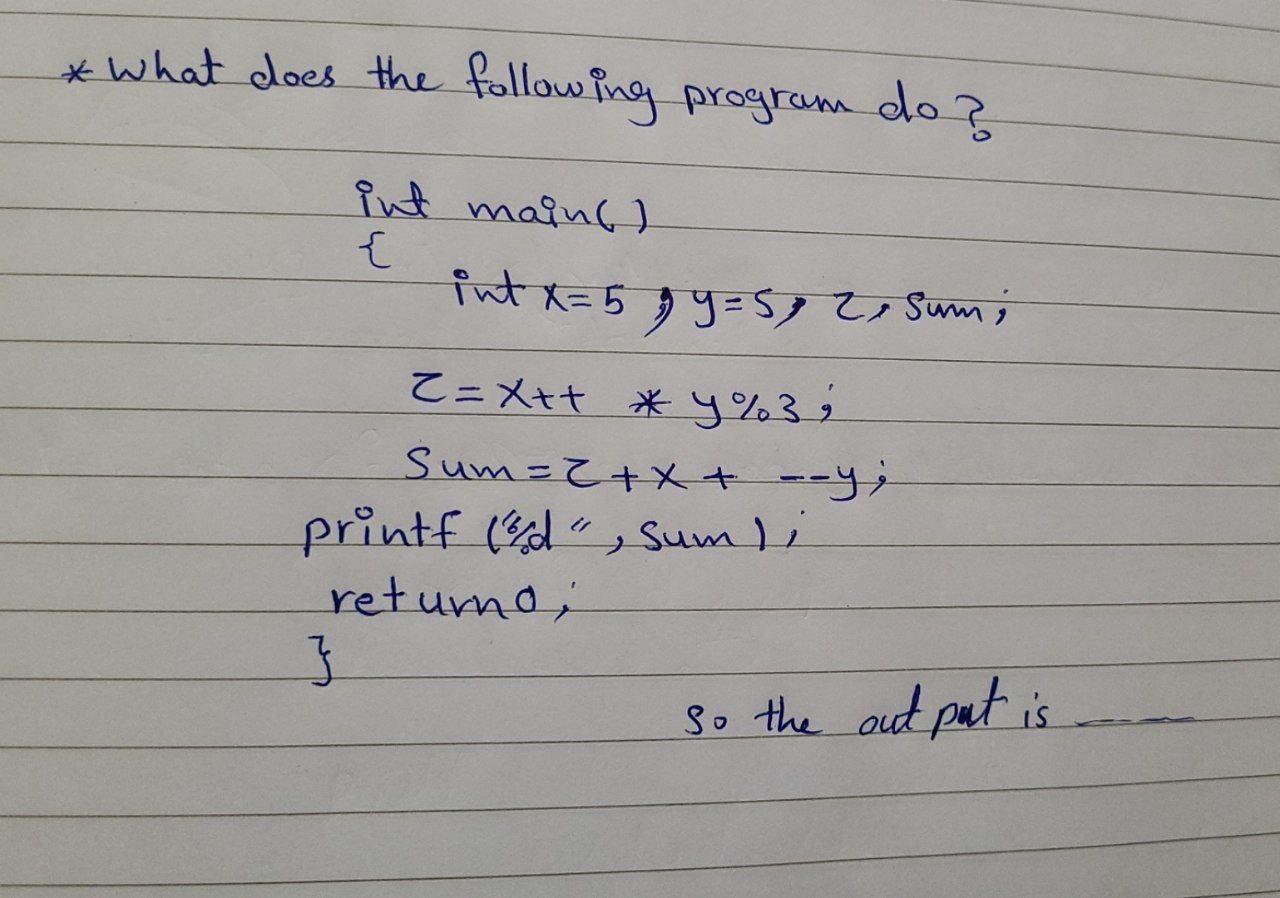 * What does the following program do?
int main()
{
int x=5, y=5, z, sum;
z=x++ * y%3;
sum=z+x+ --y;
printf ("%d", sum);
return0;
}
so the out put is ___